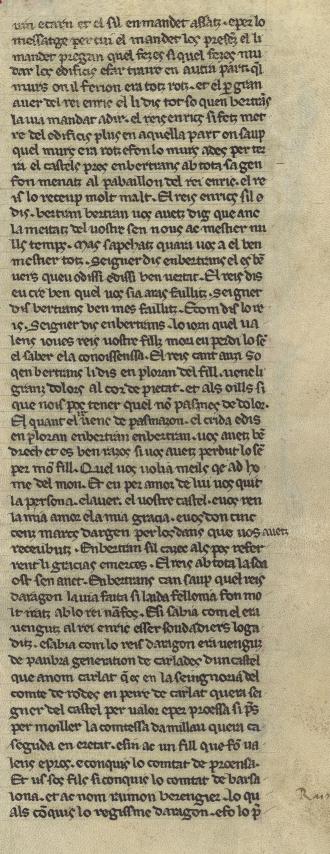 uin ecarn et el sil en mandet assatz. e per lo
messatge per cui el mandet los presez el li
mandet pregan quel fezes si quel fezes mu
dar los edificis e far traire en autra part. qel
murs on il ferion era totz rotz. et el per gran
auer del rei enric el li dis tot so quen bertrans
laiua mandat adir. el reis enrics si fetz metre
re del edificis plus en aquella part on saup
quel murs era rotz e fon lo murs ades per ter
ra. el castels pres en bertrans ab tota sa gen
fon menatz al pabaillon del rei enric. el re
is lo receup molt malt. El reis enrics sil o
dis. bertran bertran uos auetz dig que anc
la meitatz del uostre sen nous ac mestier nu
lls temps. Mas sapchatz quara uos a el ben
mestier totz. Seigner dis enbertrans el es be
uers queu o dissi e dissi ben uertat. El reis dis
eu cre ben quel uos sia aras faillitz. Seigner
dis bertrans ben mes faillitz. E com dis lo re
is. Seigner dis enbertrans. lo iorn quel ua
lens ioues reis uostre fillz mori eu perdi lo sen
el saber e la conoissenssa. El reis cant auzi so
qen bertrans li dis en ploran del fill. uenc li
granz dolors al cor de pietat. et als oills si
que nois poc tener quel no pasmes de dolor.
El quant el uenc de pasmazon. el crida e dis
en ploran enbertran enbertran. uos auetz be
drech et es ben razos si uos auetz perdut lo sen
per mon fill. Quel uos uolia meils qe ad ho
me del mon. Et eu per amor de lui uos quit
la persona. e lauer. el uostre castel. e uos ren
la mia amor e la mia gracia. e uos don cinc
cenz marcs dargen per los dans que uos auetz
receubutz. Enbertran sil cazec als pes refer
rent li gracias e merces. El reis ab tota la soa
ost sen anet. Enbertrans can saup quel reis
daragon laiua faita si laida fellonia fon mo
lt iratz ab lo rei nanfos. E si sabia com el era
uengutz al rei enric esser soudadiers loga
ditz. e sabia com lo reis daragon era uengutz
de paubra generation de carlades dun castel
que anom carlat qes en la seingnoria del
comte de rodes. en peire de carlat quera sei
gner del castel per ualor e per proessa si pres
per moiller la comtessa damillau quera ca
seguda en eretat. e sin ac un fill que fo ua
lens e pros. e conquis lo comtat de proensa.
Et us sos fils si conquis lo comtat de barsa
lona. et ac nom raimon berengier. lo qu
als conquis lo regisme daragon. e fo lo p